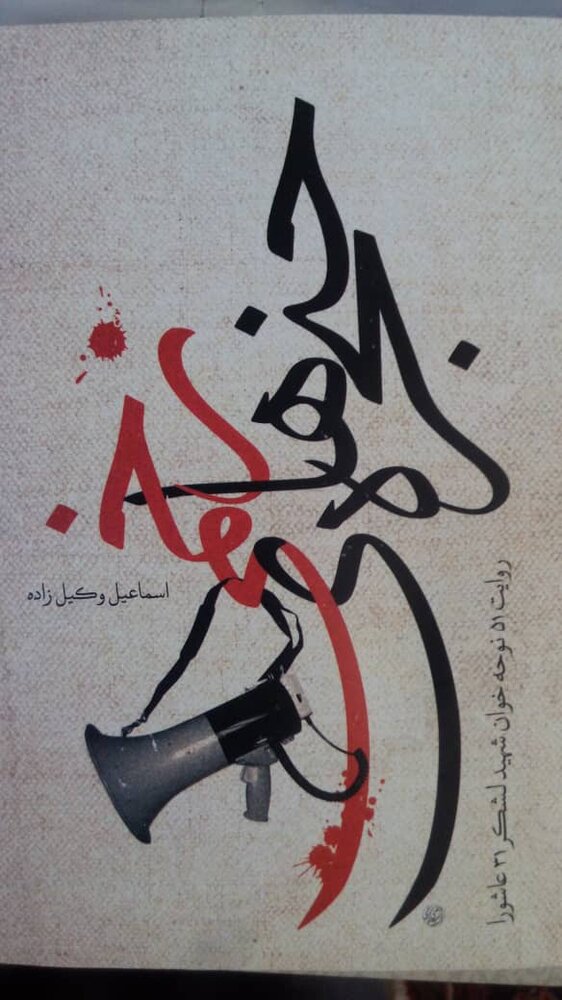 حنجره‌های
زخمی
روایت ۵۱ نوحه خوان شهید لشکر ۳۱ عاشورا
اسماعیل وکیل زاده